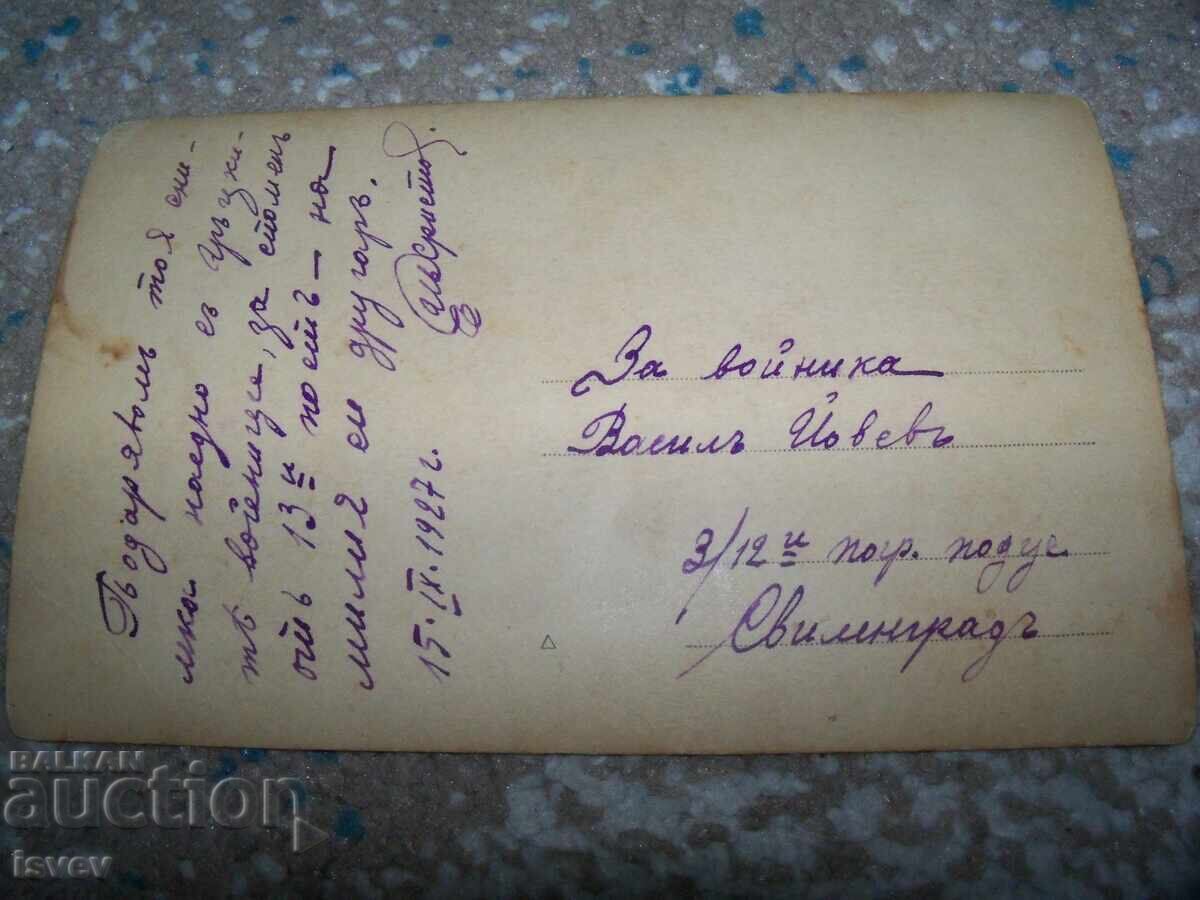 Подарявамъ тоя сни-
мка наедно съ гръцки-
тѣ войници, за споменъ
отъ 13й постъ – на
милия си другаръ.
15.IX.1927 г.
За войника
Василъ Йовевъ
3/12й погр. подуч.
Свилинградъ
BALKAN
auction
isvev